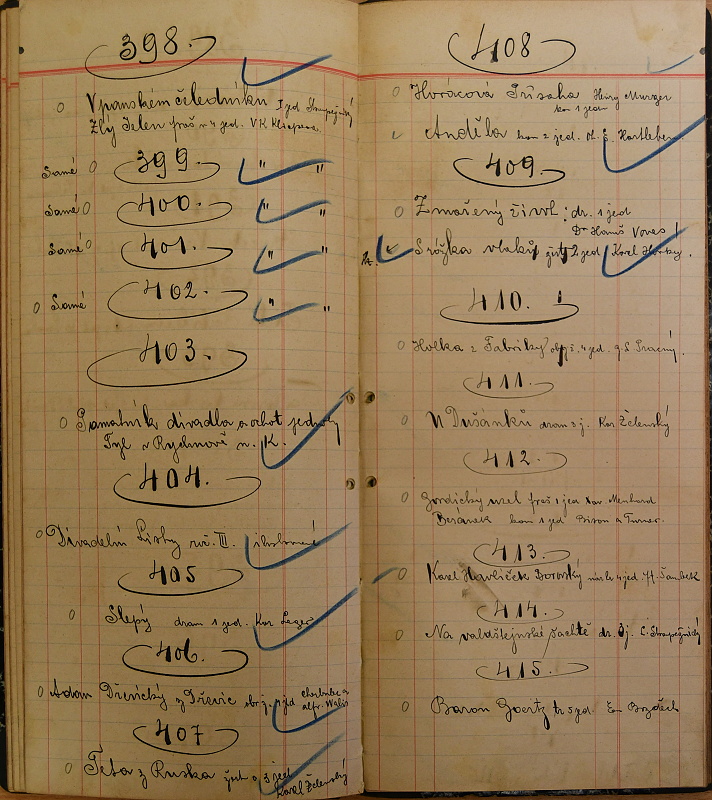 398.
V panském čeledníku I jed Stroupežnický
Zlý Jelen fraš v 4 jed. V. K. Klicpera
Samé 399 " "
Samé 400. " "
Samé 401. " "
Samé 402. " "
403.
Památník divadla a ochot jednoty
Tyl v Rychnově n. K.
404.
Divadelní Listy roč. III. ilustrované
405
Slepý dram 1 jed. Kar Leger
406.
Adam Dřevický z Dřevic obr z
alfr. Walis
407
Teta z Ruska žert o 3 jed
Karel Želenský
408
Horácova Přísaha Henry Murger
kom 1 jedn
Anděla kom 2 jed. O. E. Hartleben
409.
Zmařený život: dr. 1 jed
Dr Hanuš
Srážka vlaků žert 2 jed Karel Horký.
410.
Holka z Fabriky 4 jed.
411.
U Dušánků dram 3 j. Kar Želenský
412.
Gordický uzel fraš 1 jed Xav. Menhard
Beránek kom 1 jed Bison a Turner.
413.
Karel Havlíček Borovský 4 jed. Fr. Šamberk
414.
Na valdštejnské šachtě dr. 3j. L. Stroupežnický
415.
Baron Goertz tr 5 jed. Em Bozděch